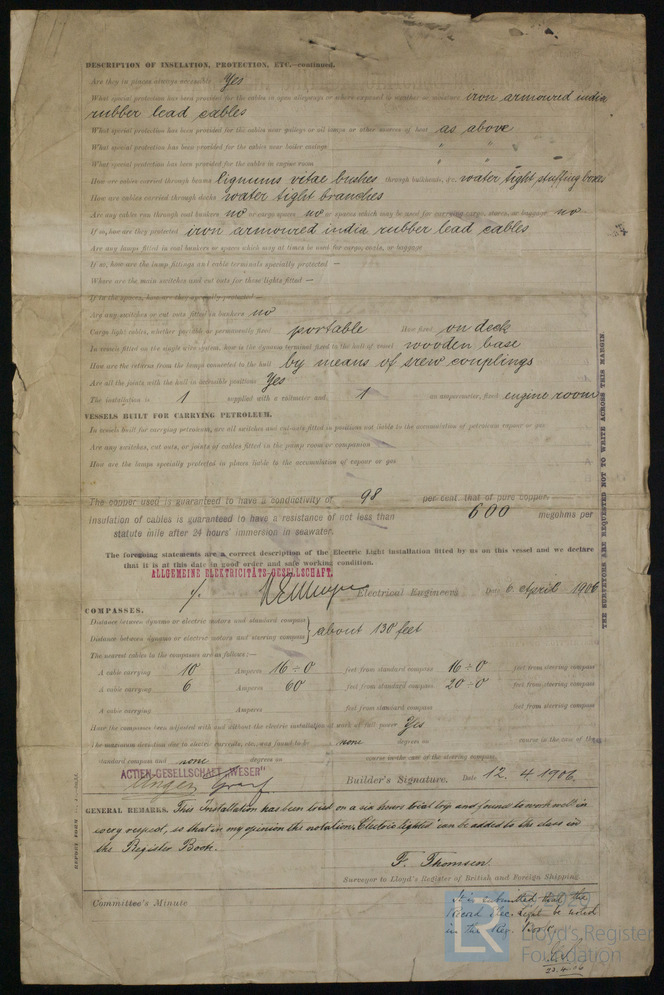 DESCRIPTION OF INSULATION, PROTECTION, ETC.—continued.
Are they in places always accessible Yes
What special protection has been provided for the cables in open alleyways or where exposed to weather or moisture iron armoured india
rubber lead cables
What special protection has been provided for the cables near galleys or oil lamps or other sources of heat as above
What special protection has been provided for the cables near boiler casings " " "
What special protection has been provided for the cables in engine room " " "
How are cables carried through beams lignums vitae bushes through bulkheads, &c. water tight stuffing boxes
How are cables carried through decks water tight branches
Are any cables run through coal bunkers no or cargo spaces no or spaces which may be used for carrying cargo, stores, or baggage no
If so, how are they protected iron armoured india rubber lead cables
Are any lamps fitted in coal bunkers or spaces which may at times be used for cargo, coals, or baggage
If so, how are the lamp fittings and cable terminals specially protected —
Where are the main switches and cut outs for these lights fitted —
If in the spaces, how are they specially protected —
Are any switches or cut outs fitted in bunkers no
Cargo light cables, whether portable or permanently fixed portable How fixed on deck
In vessels fitted on the single wire system, how is the dynamo terminal fixed to the hull of vessel wooden base
How are the returns from the lamps connected to the hull by means of srew couplings
Are all the joints with the hull in accessible positions Yes
The installation is 1 supplied with a voltmeter and 1 an amperemeter, fixed engine room
VESSELS BUILT FOR CARRYING PETROLEUM.
In vessels built for carrying petroleum, are all switches and cut outs fitted in positions not liable to the accumulation of petroleum vapour or gas
Are any switches, cut outs, or joints of cables fitted in the pump room or companion
How are the lamps specially protected in places liable to the accumulation of vapour or gas
The copper used is guaranteed to have a conductivity of 98 per cent. that of pure copper.
Insulation of cables is guaranteed to have a resistance of not less than 600 megohms per
statute mile after 24 hours' immersion in seawater.
The foregoing statements are a correct description of the Electric Light installation fitted by us on this vessel and we declare
that it is at this date in good order and safe working condition.
ALLGEMEINE ELEKTRICITÄTS-GESELLSCHAFT.
Electrical Engineers Date 6. April 1906
COMPASSES.
Distance between dynamo or electric motors and standard compass
Distance between dynamo or electric motors and steering compass
about 130 feet
The nearest cables to the compasses are as follows:—
A cable carrying 10 Amperes 16÷0 feet from standard compass 16÷0 feet from steering compass
A cable carrying 6 Amperes 60 feet from standard compass 20÷0 feet from steering compass
A cable carrying Amperes feet from standard compass feet from steering compass
Have the compasses been adjusted with and without the electric installation at work at full power Yes
The maximum deviation due to electric currents, etc. was found to be none degrees on course in the case of the
standard compass and none degrees on course in the case of the steering compass
ACTIEN-GESELLSCHAFT „WESER"
Builder's Signature. Date 12. 4. 1906.
GENERAL REMARKS. This Installation has been tried on a six hours trial trip and found to work well in
every respect, so that in my opinion the notation „Electric lighted" can be added to the class in
the Register Book.
F. Thomsen
Surveyor to Lloyd's Register of British and Foreign Shipping
Committee's Minute
It is submitted that the
Record Elec. Light be noted
in the Reg. Book.
23.4.06
THE SURVEYORS ARE REQUESTED NOT TO WRITE ACROSS THIS MARGIN.
REPORT FORM
LR
Lloyd's Register
Foundation